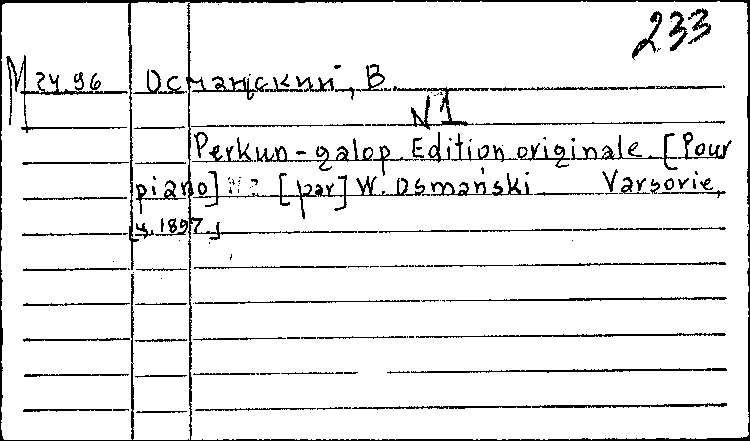 233
M 24.96 Осмањский, В.
N1
Perkun-galop. Edition originale. [Pour
piano] [par] W. Osmański. Varsovie,
[ц. 1897]